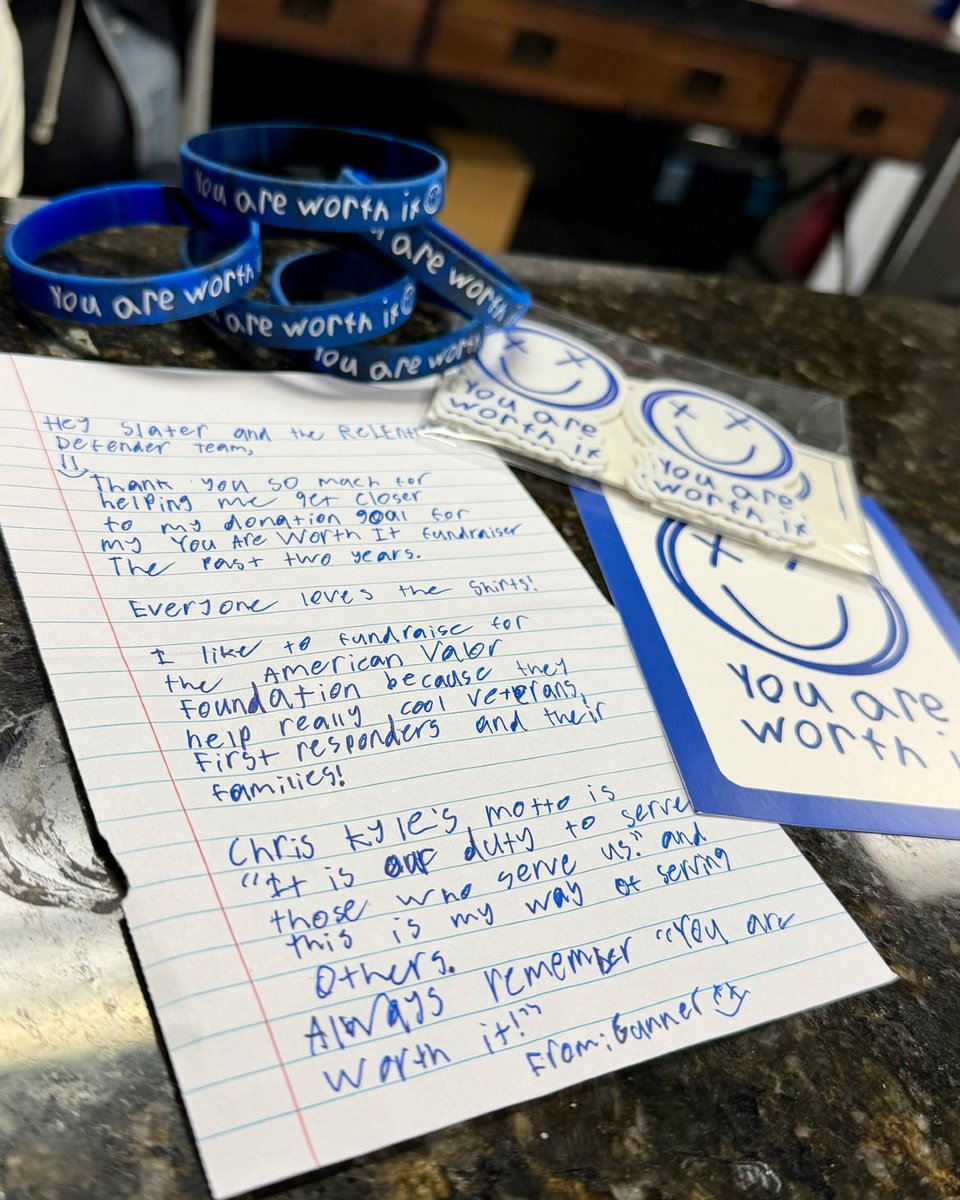 You are worth it
You are worth
are worth it
are worth i
You are worth
You are
worth it
You are
worth it
You are
worth i
Hey Slater and the RELENT
Defender team,
Thank you so much for
helping me get closer
to my donation goal for
my You Are Worth It fundraiser
The past two years.
Everyone loves the shirts!
I like to fundraise for
the American Valor
Foundation because they
help really cool veterans,
First responders and their
families!
Chris Kyle's motto is
"It is our duty to serve
those who serve us." and
this is my way of serving
others.
Always remember "You are
worth it!"
From: Gunner